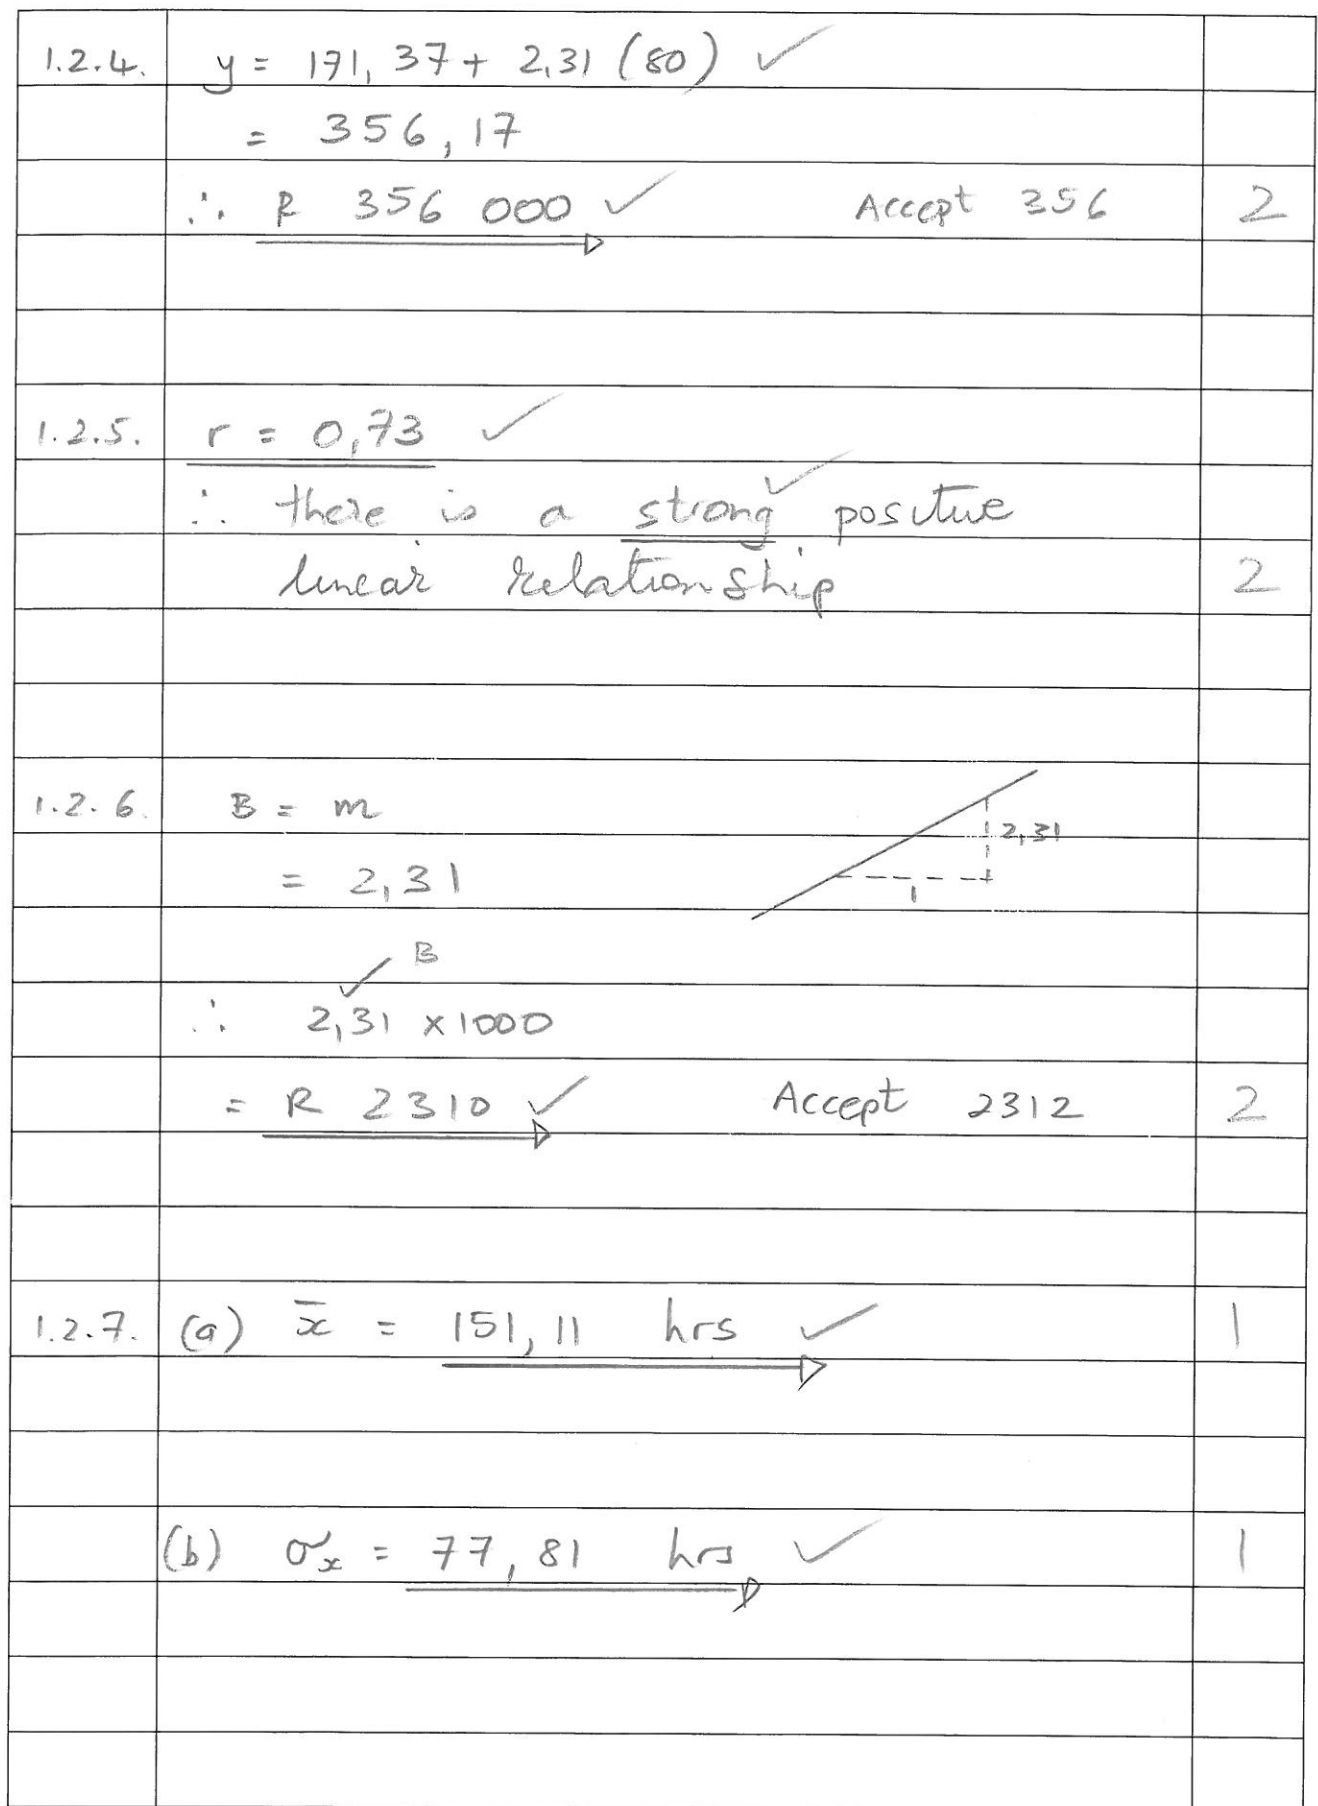 1.2.4. y = 171,37 + 2,31 (80) ✓
= 356,17
∴ R 356 000 ✓ Accept 356 2
1.2.5. r = 0,73 ✓
∴ there is a strong ✓ positive
linear relationship 2
1.2.6. B = m
= 2,31
2,31
1
✓ B
∴ 2,31 x 1000
= R 2310 ✓ Accept 2312 2
1.2.7. (a) x̄ = 151,11 hrs ✓ 1
(b) σx = 77,81 hrs ✓ 1